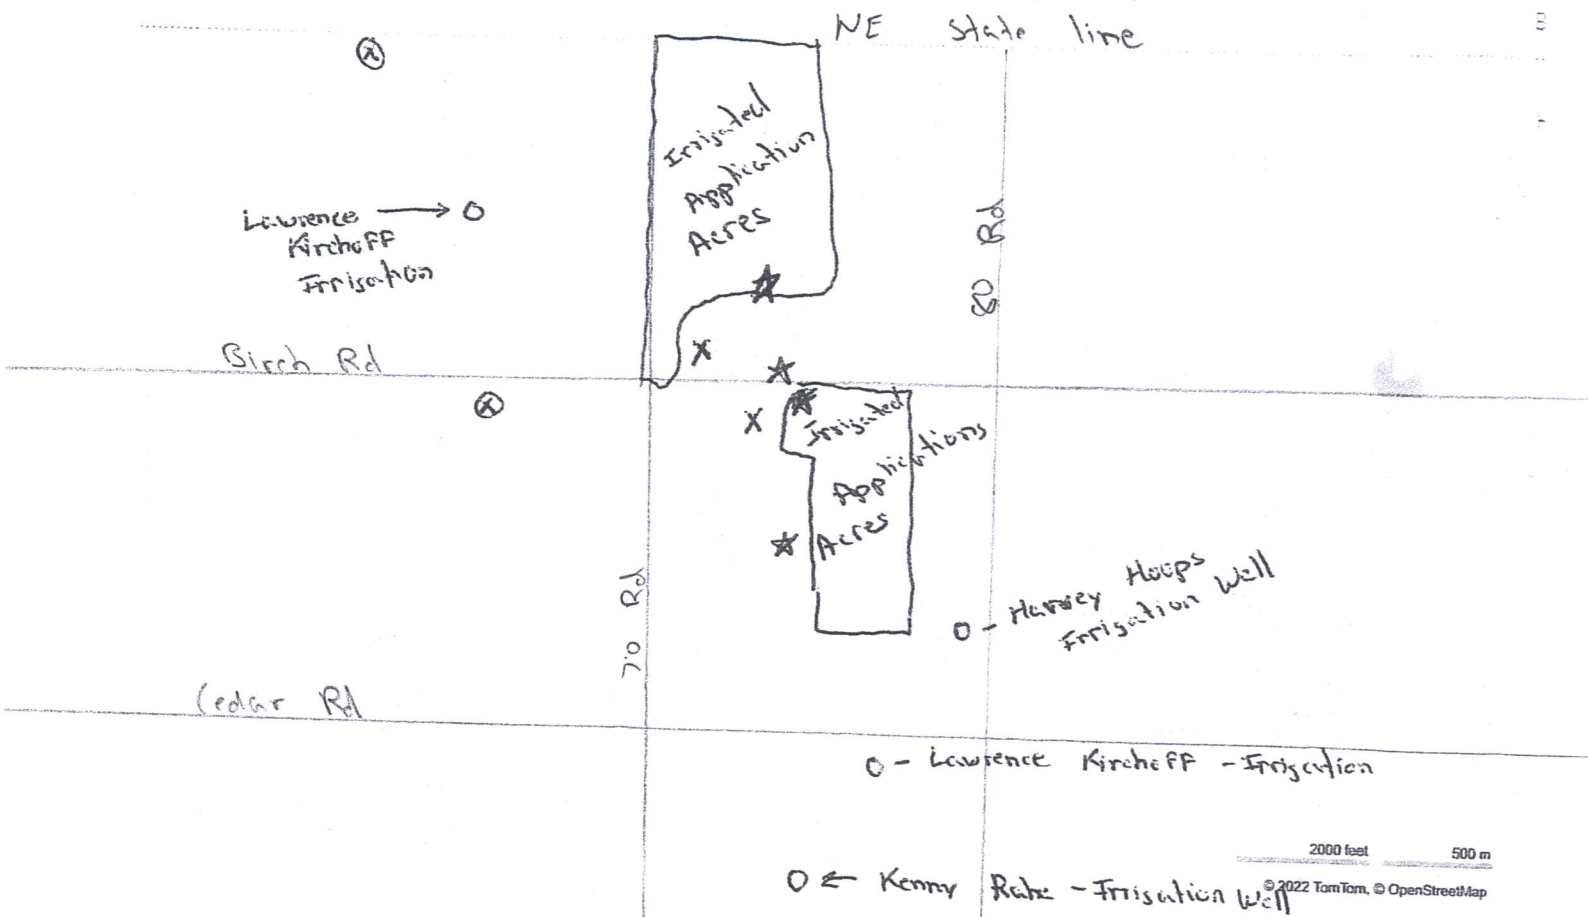 NE State line
Irrigated
Application
Acres
80 Rd
Lawrence
Kirchoff
Irrigation
Birch Rd
Irrigated
Applications
Acres
70 Rd
Harvey Hoops
Irrigation Well
Cedar Rd
O - Lawrence Kirchoff - Irrigation
2000 feet 500 m
O ← Kenny Rahe - Irrigation Well
© 2022 TomTom, © OpenStreetMap